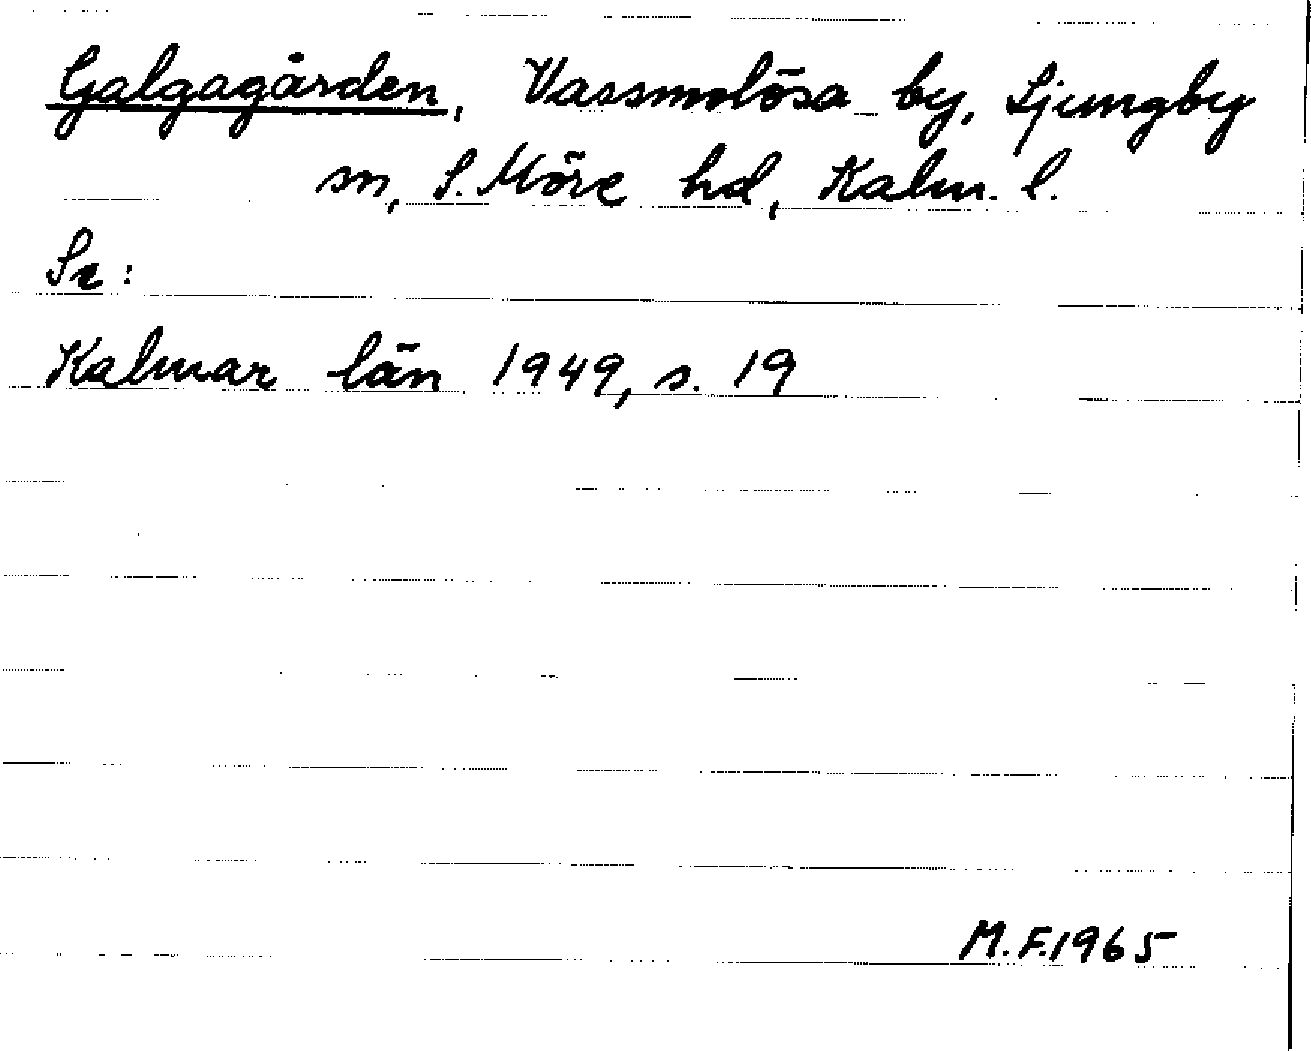 Galgagården, Vassmolösa by, Ljungby
sn, S. Möre hd, Kalm. l.
Se:
Kalmar län 1949, s. 19
M.F.1965